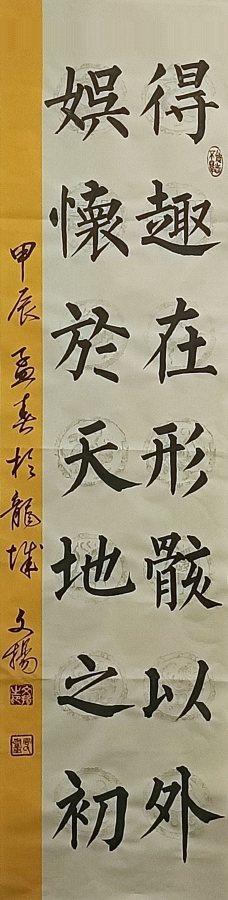 得趣在形骸以外
娛懷於天地之初
甲辰孟春於龍城 文楊